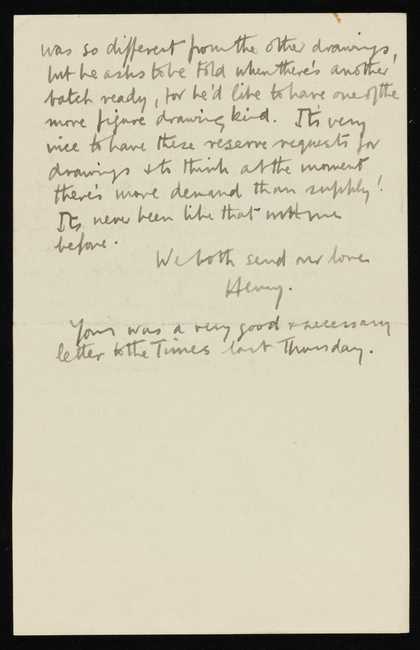 was so different from the other drawings,
but he asks to be told when there's another
batch ready, for he'd like to have one of the
more figure drawing kind. It's very
nice to have these reserve requests for
drawings & to think at the moment
there's more demand than supply!
It's never been like that with me
before.
We both send our love
Henry.
Yours was a very good & necessary
letter to the Times last Thursday.